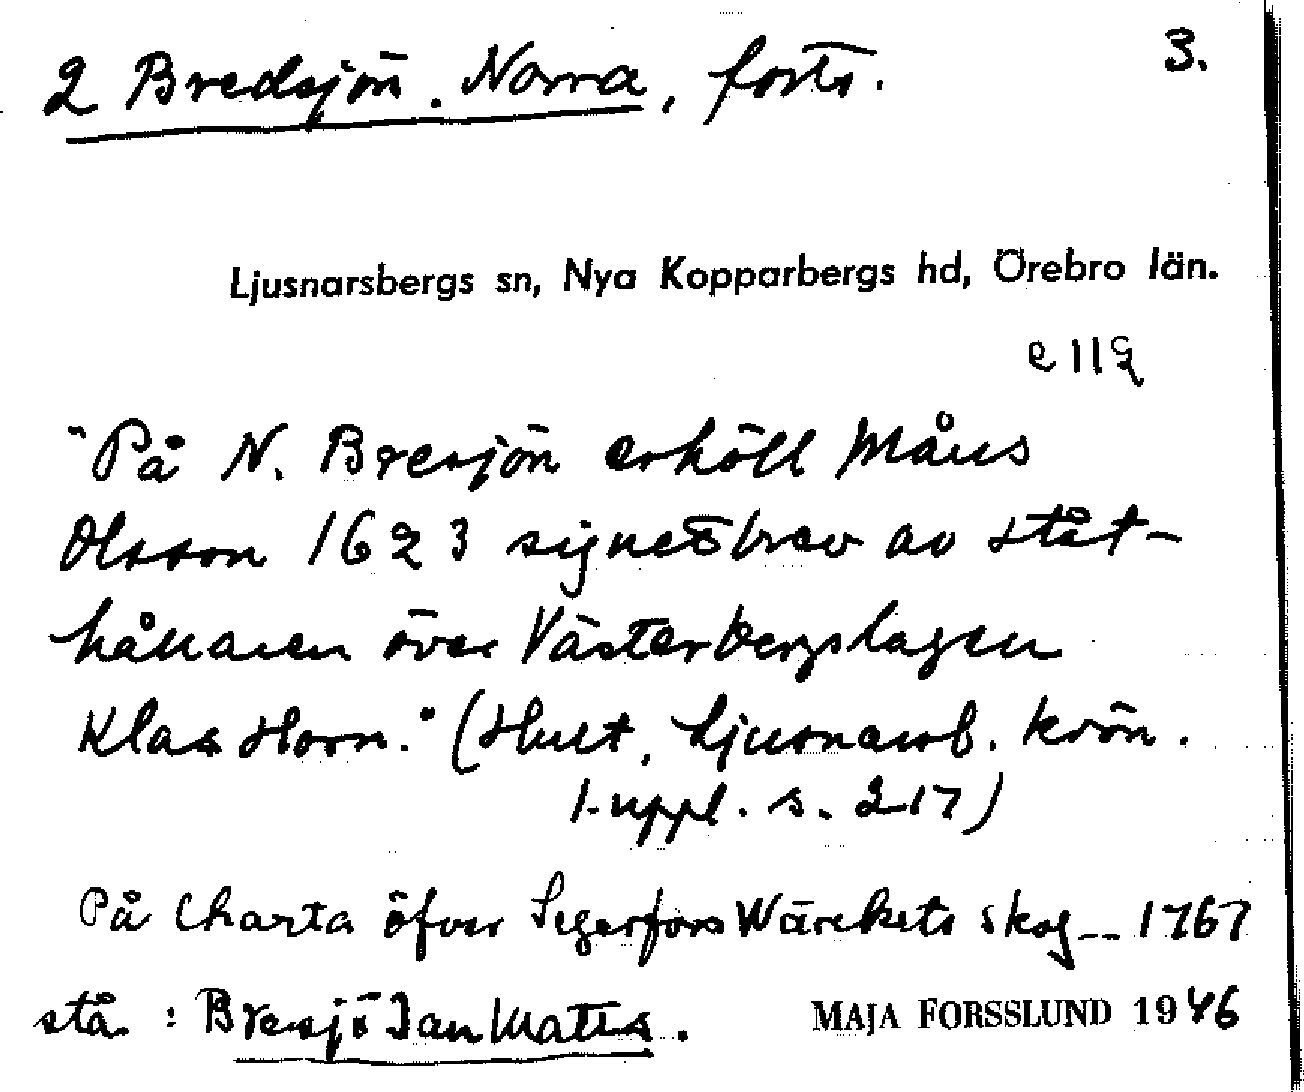 2 Bredsjön. Norra, forts. 3.
Ljusnarsbergs sn, Nya Kopparbergs hd, Örebro län.
e 11 g
"På N. Bresjön erhöll Måns
Olsson 1623 signetsbrev av ståt-
hållaren över Västerbergslagen
Klas Horn." (Hult, Ljusnarsb. krön.
1. uppl. s. 217)
På Charta öfver Segerfors Wärckets skog -- 1767
stå : Bresjö Jan Mats. MAJA FORSSLUND 1946